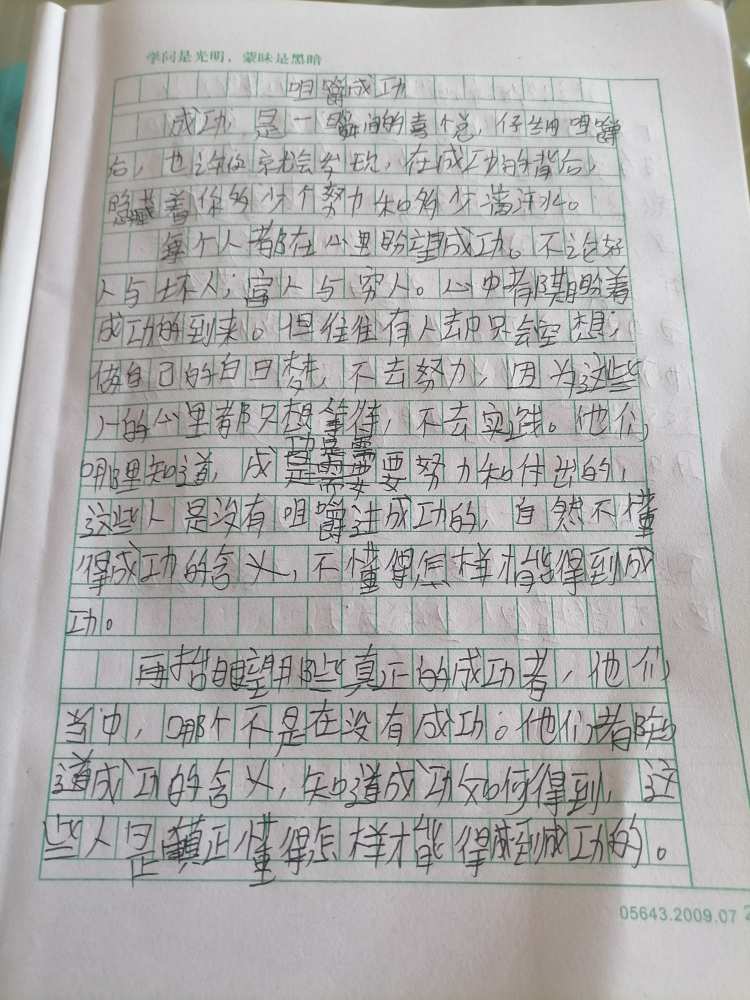 学问是光明，蒙昧是黑暗
咀嚼成功
成功，是一瞬间的喜悦，仔细咀嚼
后，也许你就会发现，在成功的背后，
隐藏着你多少个努力和多少滴汗水。
每个人都在心里盼望成功。不论好
人与坏人；富人与穷人。心中都期盼着
成功的到来。但往往有人却只会空想；
做自己的白日梦，不去努力，因为这些
人的心里都只想等待，不去实践。他们
哪里知道，成功是需要努力和付出的，
这些人是没有咀嚼过成功的，自然不懂
得成功的含义，不懂得怎样才能得到成
功。
再抬眼望那些真正的成功者，他们
当中，哪个不是在没有成功。他们都知
道成功的含义，知道成功如何得到，这
些人是真正懂得怎样才能得到成功的。
05643.2009.07